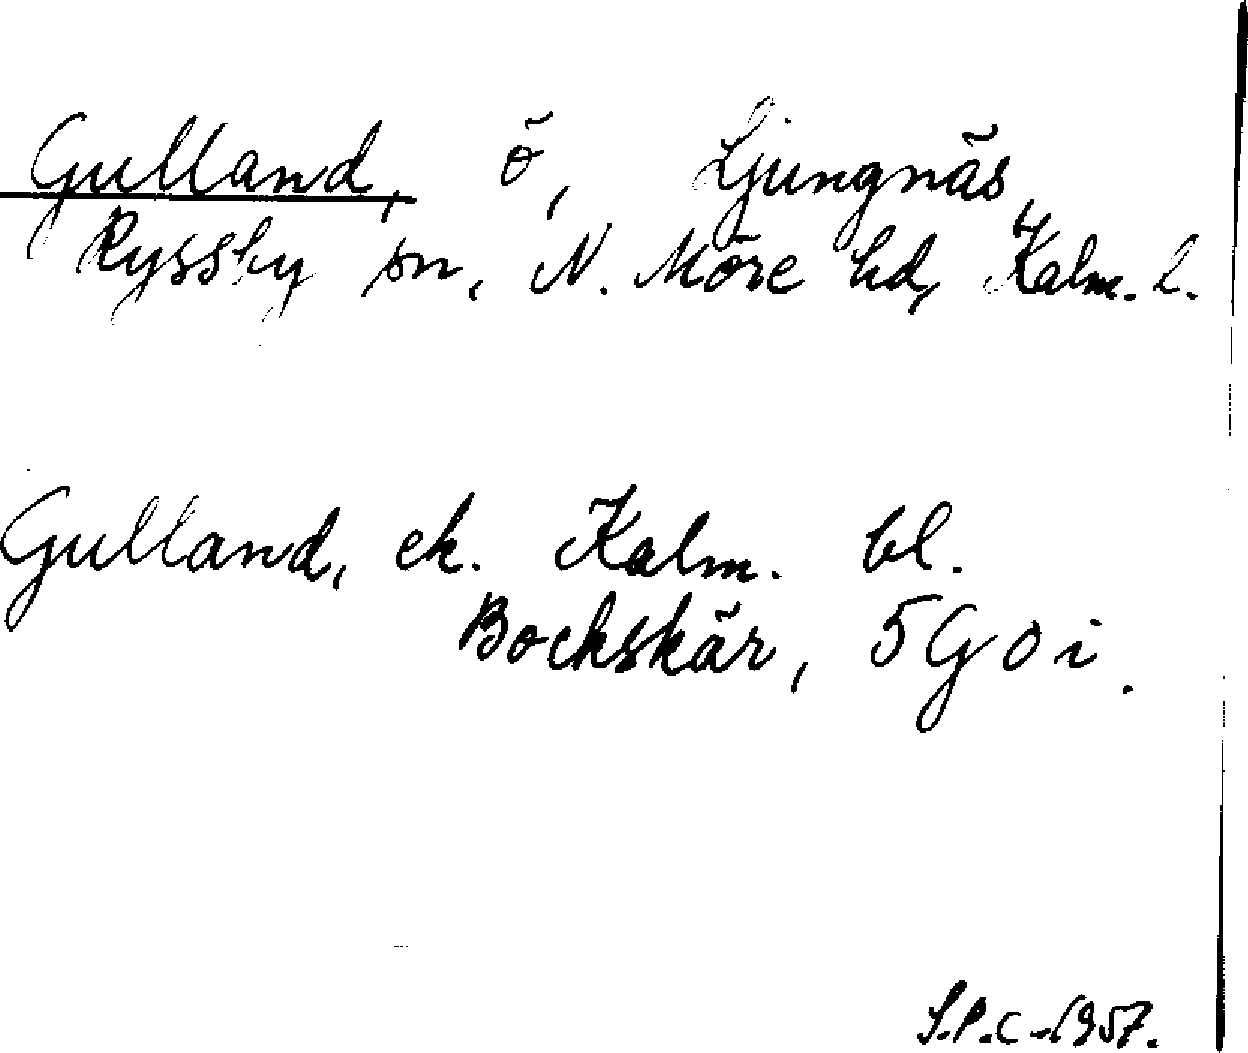 Gulland, ö, Ljungnäs,
Ryssby sn, N. Möre hd, Kalm. l.
Gulland, ek. Kalm. bl.
Bockskär, 5G0i.
S.P.C-1957.